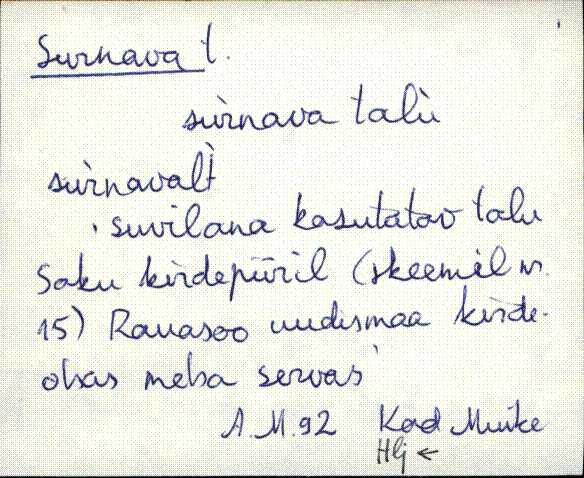 Surnava t.
sùrnava talù
sùrnavalt̀
'suvilana kasutatav talu
Saku kirdepiiril (skeemil nr.
15) Rauasoo uudismaa kirde-
otsas metsa servas'
A.M.92 Kad Muike
Hlj ←